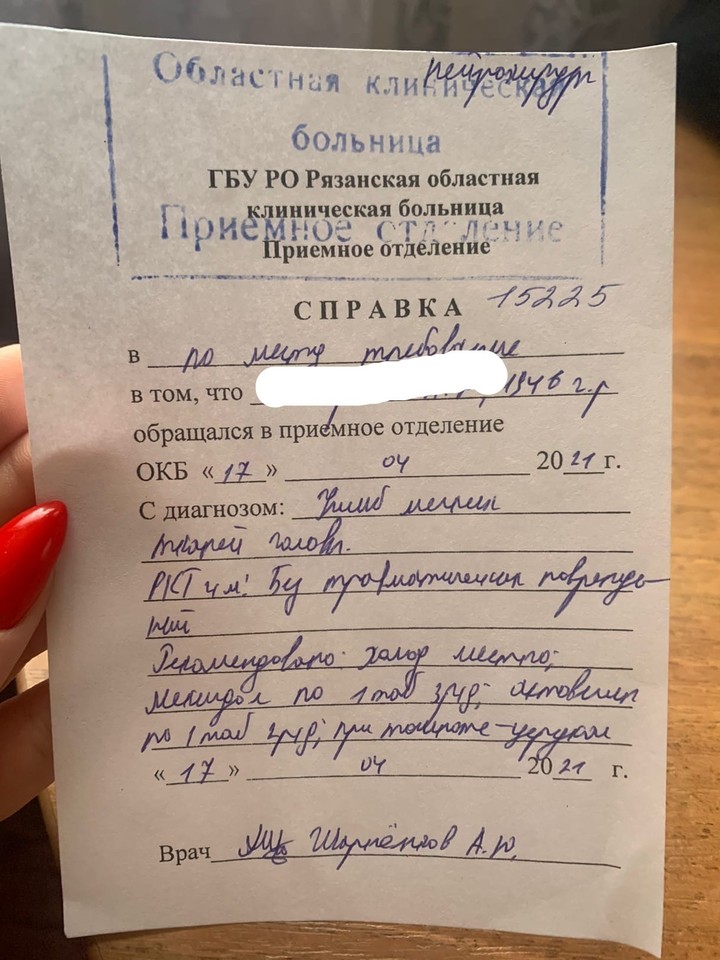 нейрохирург
Областная клиническая
больница
ГБУ РО Рязанская областная
клиническая больница
Приемное отделение
Приемное отделение
СПРАВКА 15225
в по месту требования
в том, что , 1946 г.р
обращался в приемное отделение
ОКБ «17» 04 2021 г.
С диагнозом: Ушиб мягких
тканей головы.
РКТ чм: Без травматических поврежде-
ний
Рекомендовано: холод местно;
мексидол по 1 таб 3р/д; актовегин
по 1 таб 2р/д; при тошноте - церукал
«17» 04 2021 г.
Врач А.Ю.